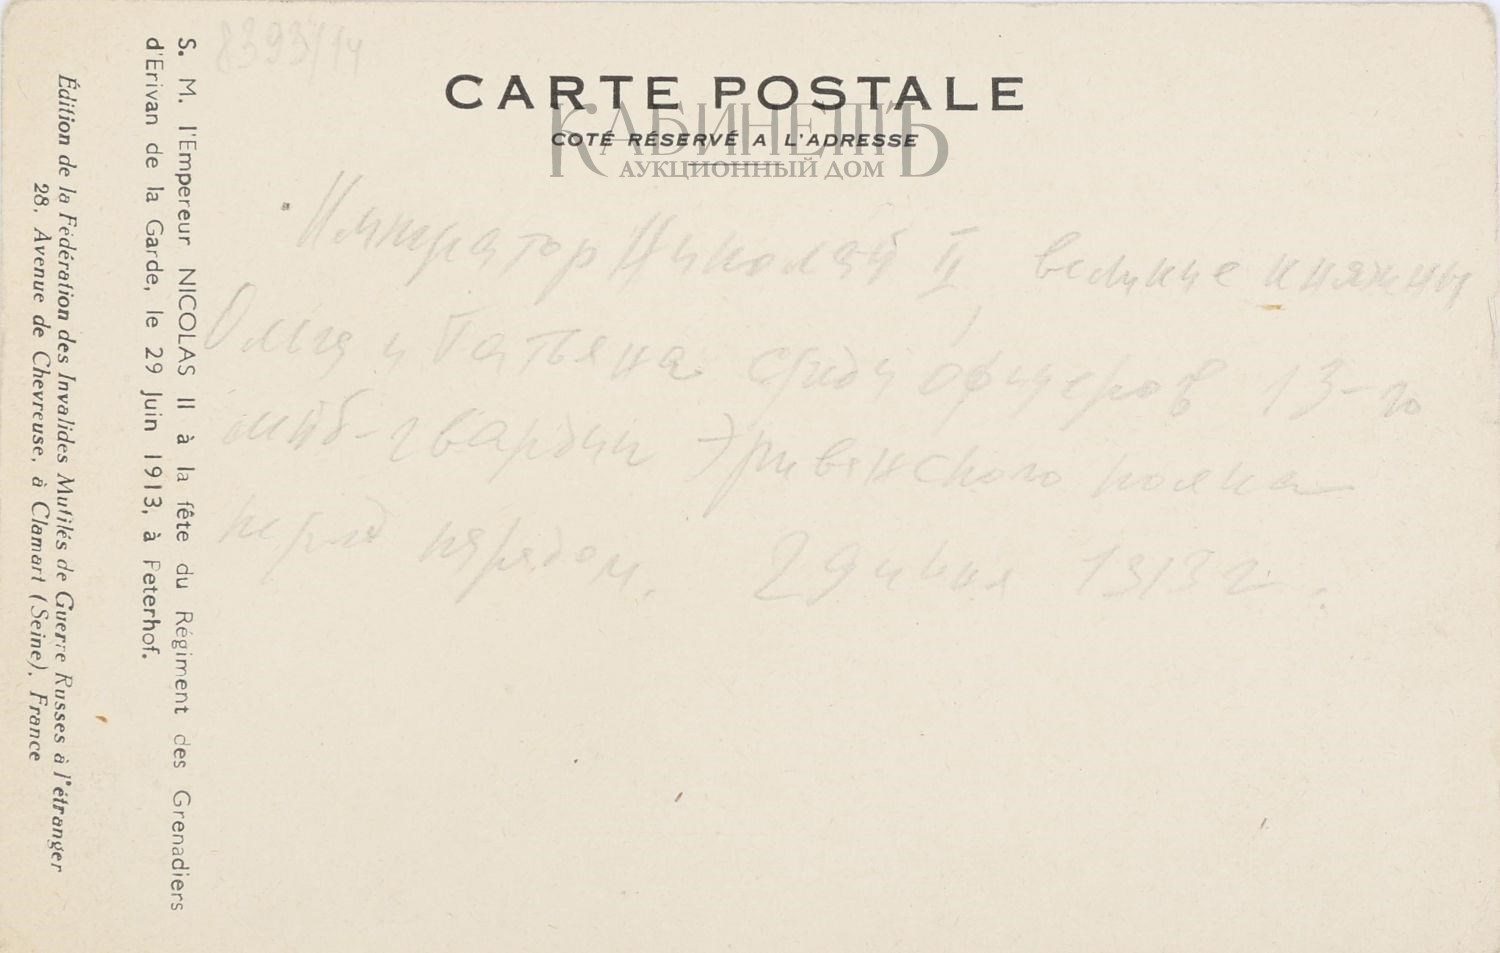 8393/14
CARTE POSTALE
COTÉ RÉSERVÉ A L'ADRESSE
КАБИНЕТЪ
АУКЦИОННЫЙ ДОМ
Император Николай II, великие княжны
Ольга и Татьяна среди офицеров 13-го
лейб-гвардии Эриванского полка
перед парадом. 29 июня 1913 г.
S. M. l'Empereur NICOLAS II à la fête du Régiment des Grenadiers
d'Erivan de la Garde, le 29 Juin 1913, à Peterhof.
Édition de la Fédération des Invalides Mutilés de Guerre Russes à l'étranger
28, Avenue de Chevreuse, à Clamart (Seine), France